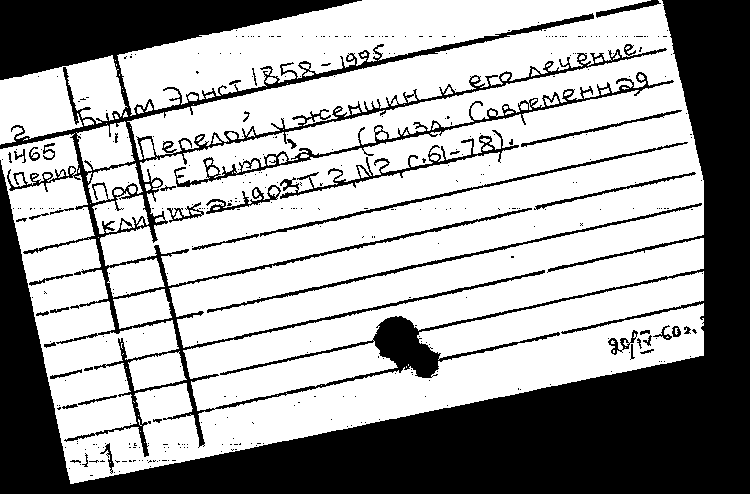 Бумм, Эрнст 1858-1925
2
1465
(Период)
Перелой у женщин и его лечение.
Проф. Е. Бumma (В изд: Современная
клиника. 1903 Т. 2, N2, с. 61-78).
20/IV-60г.
1